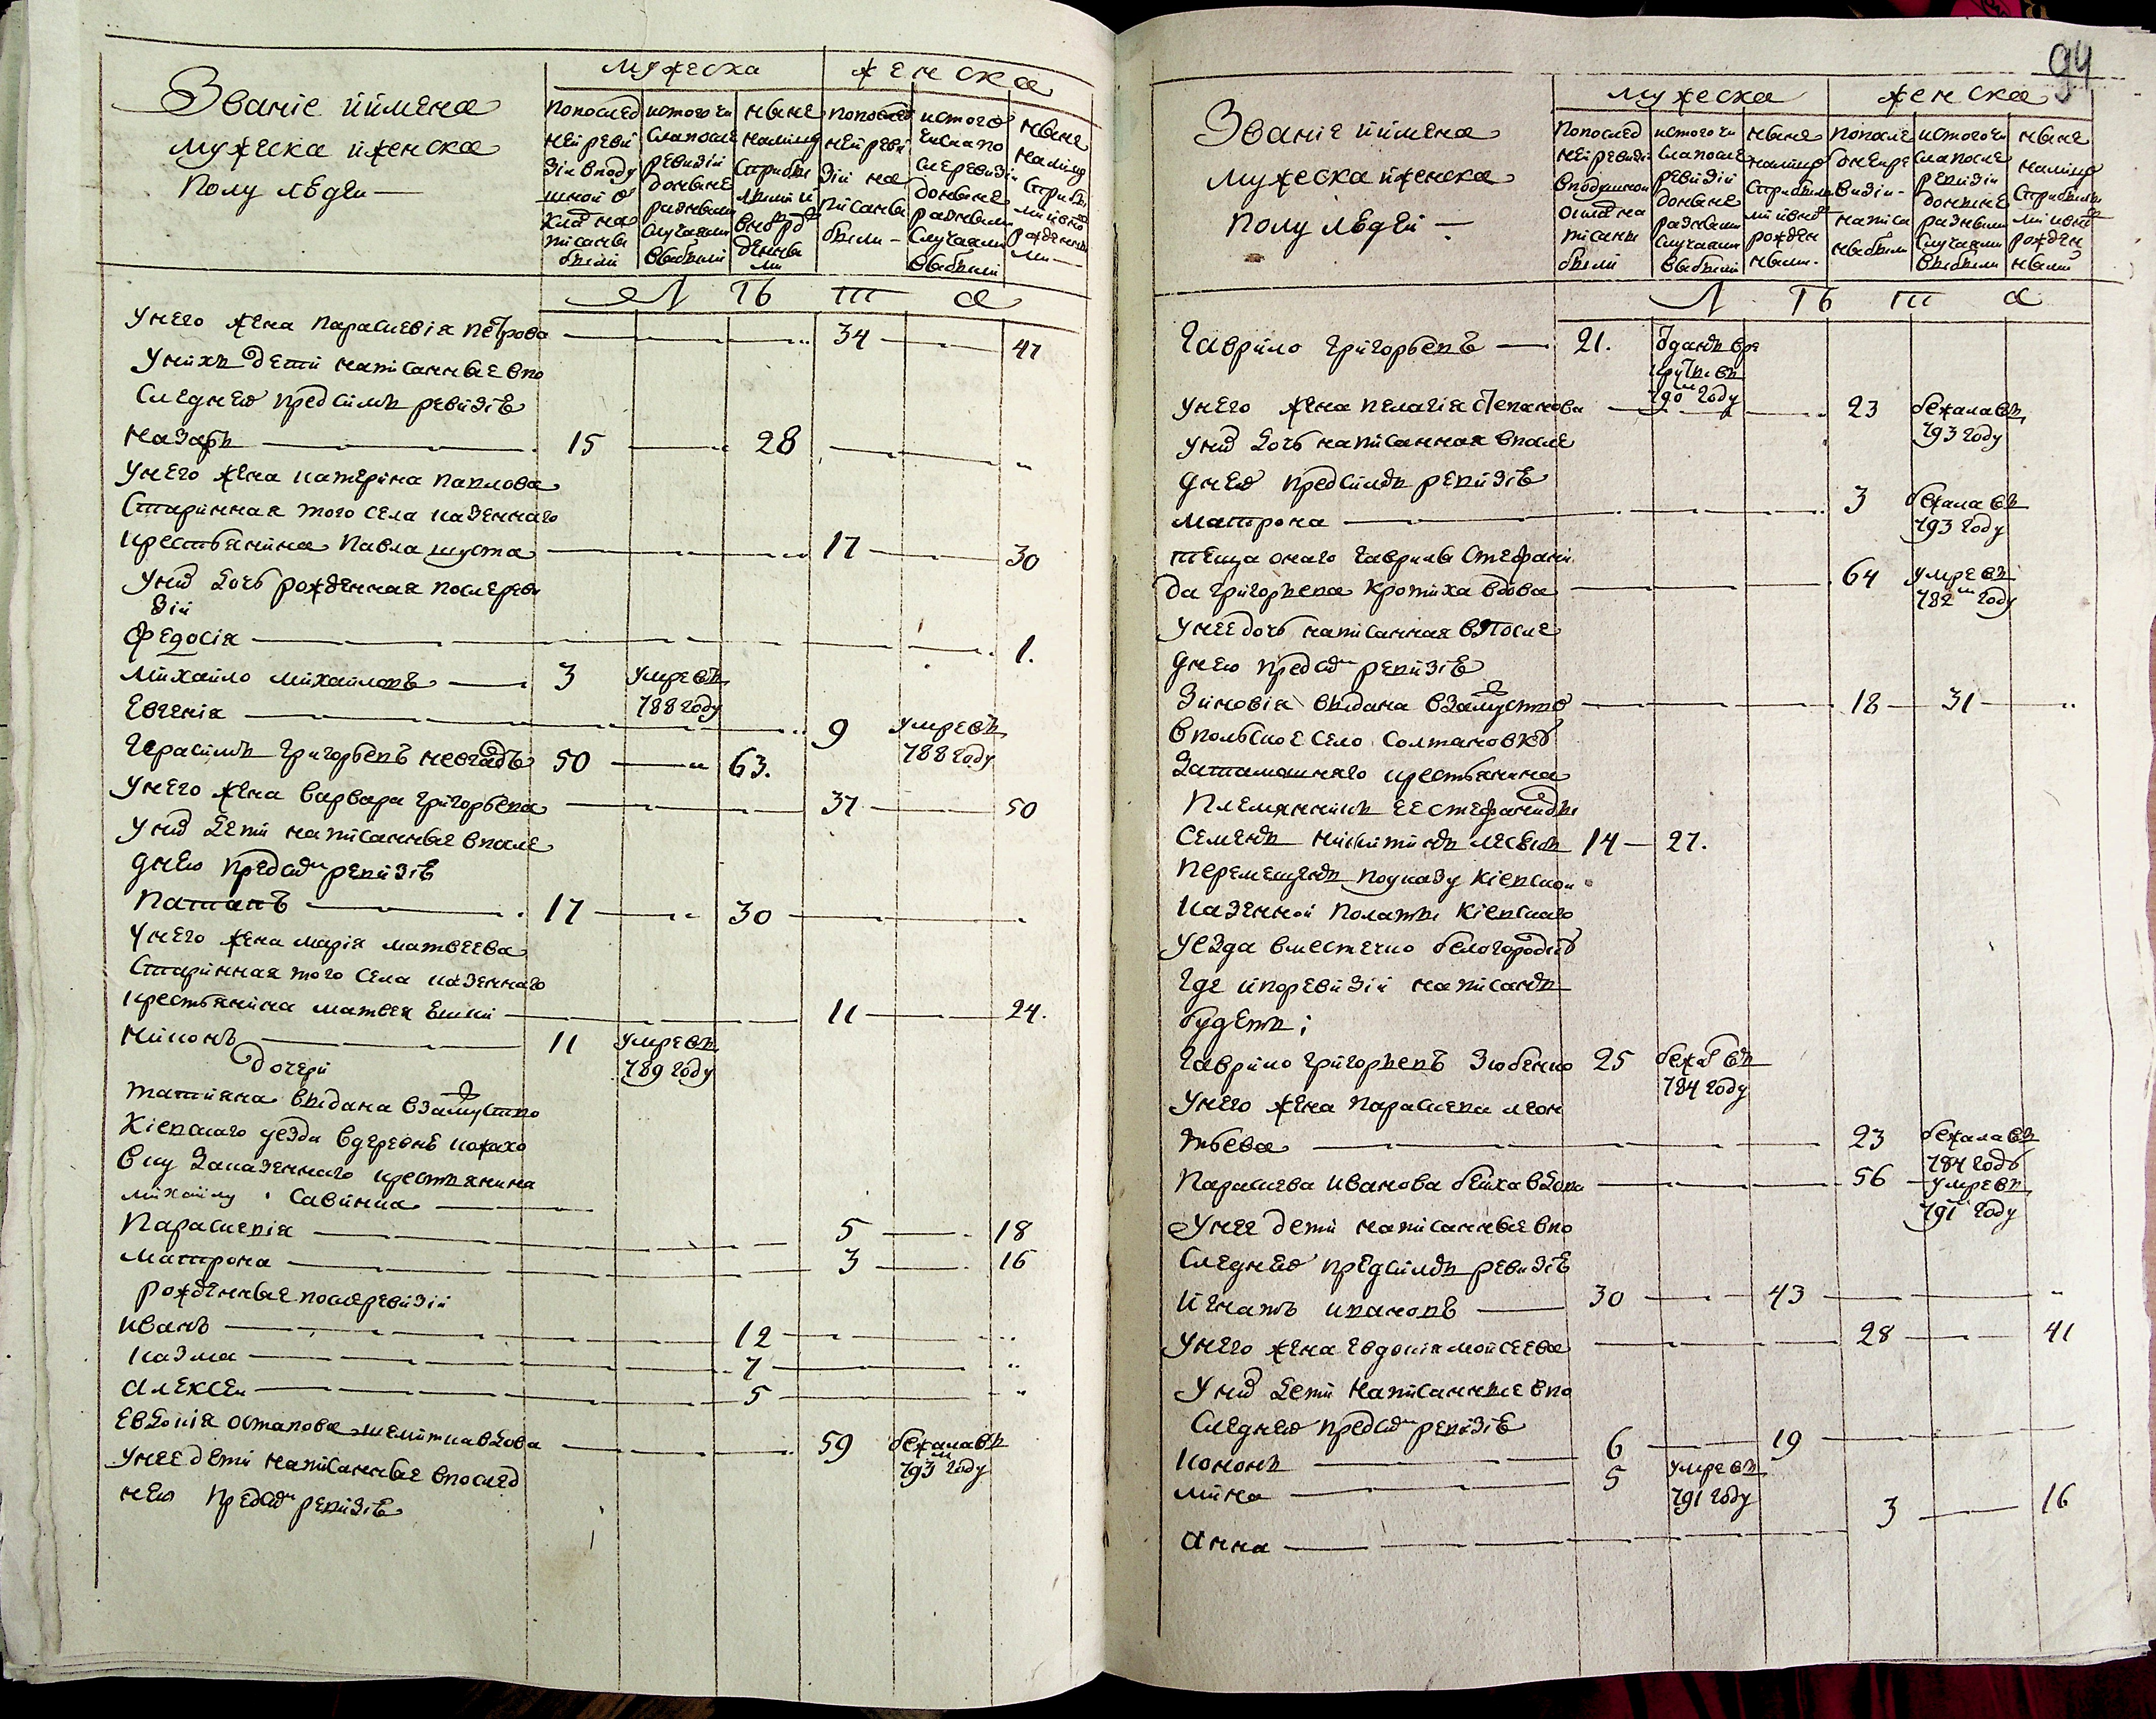 Званіе иимена
мужеска иженска
полу людей
мужеска
женска
попослед
ней реви
зіи вподу
шной о
клад на
писаны
были
истого чи
сла после
ревизіи
доныне
разными
случаями
выбыли
ныне
налицо
сприбы
лыми и
вновро
жденны
ми
попослед
ней реви
зіи на
писаны
были
истого
числа по
слеревизіи
доныне
разными
случаями
выбыли
ныне
налицо
сприбы
лыми
рожденны
ми
Л Ѣ Т а
Унего жена параскевія петрова 34 47
Унихъ дети написанные впо
следнею предсимъ ревизіе
назаръ 15 28
Унего жена катерина павлова
Старинная того села казеннаго
крестьянина Павла шуста 17 30
Унихъ дочь рожденная послереви
зіи
федосія 1.
михайло михайловъ 3 умре въ
788 году
Евгенія 9 умре въ
788 году
Герасимъ григорьевъ 50 63.
Унего жена варвара григорьева 37 50
Унихъ дети написанные впосле
днею предсимъ ревизіе
Патапъ 17 30
Унего жена марія матвеева
Старинная того села казеннаго
крестьянина матвея 11 24.
никонъ 11 умре въ
789 году
дочери
татіяна выдана взамуство
Кіевскаго уезда вдеревне кожухо
вку заказеннаго крестьянина
михайлу Савинка
Параскевія 5 18
матрона 3 16
рожденные послеревизіи
иванъ 12
казма 7
алексей 5
Евдокія остапова вдова 59 бежала въ
793 году
Унее дети написанные впослед
нею предсимъ ревизіе
94
Званіе иимена
мужеска иженска
полу людей
мужеска
женска
попослед
ней ревизіи
вподушном
окладе на
писаны
были
истого чи
сла после
ревизіи
доныне
разными
случаями
выбыли
ныне
налицо
сприбылы
ми ивно
рожден
ными
попосле
дней ре
визіи
написа
ны были
истого чи
сла после
ревизіи
доныне
разными
случаями
выбыли
ныне
налицо
сприбылы
ми ивно
рожден
ными
Л Ѣ Т а
Гаврило григорьевъ 21. отданъ вре
круты въ
790 году
Унего жена пелагія степанова 23 бежала въ
793 году
Унихъ дочь написанная впосле
днею предсимъ ревизіе
матрона 3 бежала въ
793 году
теща онаго гаврилы стефани
да григорьева кротиха вдова 64 умре въ
782 году
Унее дочь написанная впосле
днею предсимъ ревизіе
Зиновія выдана взамуство 18 31
впольское село Солтановку
затамошняго крестьянина
Племянникъ ее стефаниды
семенъ никитинъ 14 27.
перемещенъ поуказу кіевской
казенной полаты кіевскаго
уезда вместечко белогородку
где иноревизіи написанъ
будетъ;
Гаврило григорьевъ Зюбенко 25 бежалъ въ
784 году
Унего жена параскева леон
тьева 23 бежала въ
784 году
Параскева иванова вдова 56 умре въ
791 году
Унее дети написанные впо
следнею предсимъ ревизіе
игнатъ ивановъ 30 43
Унего жена евдокія мойсеева 28 41
Унихъ дети написанные впо
следнею предсимъ ревизіе
кононъ 6 19
мина 5 умре въ
791 году
анна 3 16